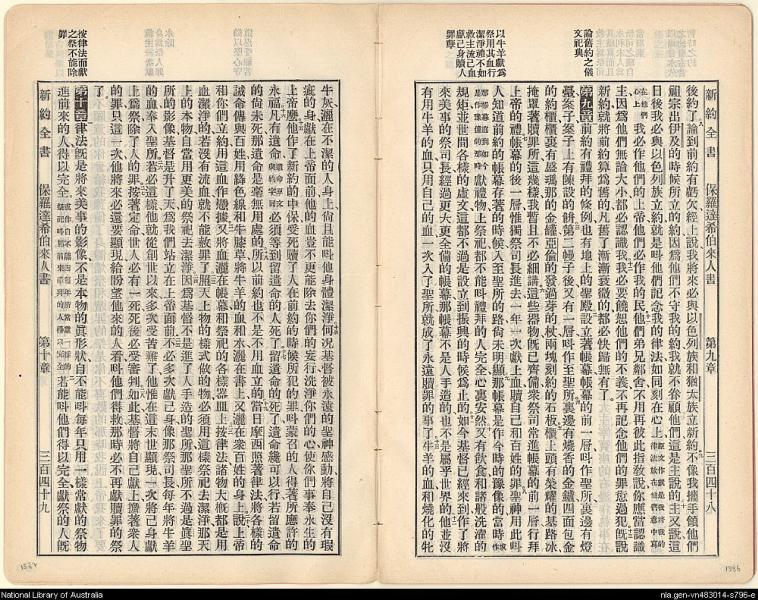 新約全書 保羅達希伯來人書 第九章 三百四十八
後約了論到前約有虧欠經上說我將來必與以色列族和猶太族立新約不像我攜手領他們
祖宗出伊及的時候所立的約因為他們不守我的約我就不眷顧他們這是主說的主又說這
日後我必與以色列族立約就是叫他們記念我的律法如同刻在心上
我必作他們的上帝他們必作我的民他們弟兄鄰舍不用再彼此指教說你應當認識
主因為他們無論大小都必認識我我必要饒恕他們的不義不再記念他們的罪愆過犯既說
新約就將前約算為舊的凡舊了漸漸衰微的都必快歸無有了
第九章前約有禮拜的條例也有地上的聖殿設立著帳幕帳幕的前一層叫作聖所裏邊有燈
臺案子案子上有陳設的餅第二幔子後又有一層叫作至聖所裏邊有燒香的金鑪四面包金
的約櫃櫃裏有盛瑪那的金罐亞倫的發過芽的杖兩塊刻約的石板櫃上頭有榮耀的基路冰
掩罩著贖罪所這幾樣我暫且不必細講這些器物既已齊備衆祭司常進帳幕的前一層行拜
上帝的禮帳幕的後一層惟獨祭司長進去一年一次獻上血贖自己和百姓的罪聖神用此叫
人知道前約的帳幕存著的時候入至聖所的路尚未明顯
獻禮物上祭祀都不能叫禮拜的人完全心裏安然又有飲食和諸般洗濯的
規矩並世間各樣的虛文這都不過是設立到振興的時候為止的如今基督已經來到作了將
來美事的祭司長經過更大更全備的帳幕那帳幕不是人手造的也不是屬乎世界的他並沒
有用牛羊的血只用自己的血一次入了聖所就成了永遠贖罪的事了牛羊的血和燒化的牝
論舊約之儀文祀典
以牛羊獻為祭用其血行潔淨禮不如救主流己血獻己身贖人罪孽
牛灰灑在不潔的人身上尚且能叫他身體潔淨何況基督被永遠的聖神感動將自己沒有瑕
疵的身獻在上帝面前他的血豈不更能除去你們的妄行洗淨你們的心使你們事奉永生的
上帝麼他作了新約的中保受死贖了人在前約的時候所犯的罪叫蒙召的人得著所應許的
永福凡有遺命必須等到留遺命的死了留遺命的死了遺命纔可以行若留遺命
的尚未死那遺命是毫無用處的所以前約也不是不用血立的當日摩西照著律法將各樣的
誡命傳與百姓用絳色線和牛膝草將牛羊的血和水灑在書上又灑在衆百姓的身上說上帝
和你們立約用這血作憑據又將血灑在帳幕和祭祀的各樣器皿上按律法諸物大概都是用
血潔淨的若沒有流血就不能赦罪了照天上物的樣式做的物必須用這樣祭祀去潔淨那天
上的本物自當用更美的祭祀去潔淨因為基督不是進了人手造的聖所那聖所不過是真聖
所的影像基督是升了天為我們站立在上帝面前不必多次獻己身像那祭司長每年將牛羊
的血奉入聖所若必這樣他就從創世以來多次受苦難了他惟在這末世顯現一次將己身獻
上為祭除了人的罪按著定命世人必有一死死後必受審判如此基督將自己獻上擔著衆人
的罪只這一次他將來必還要顯現給盼望他來的人看叫他們得救那時必不再獻贖罪的祭
了
第十章律法既是將來美事的影像不是本物的真形狀自不能叫每年只用一樣常獻的祭物
進前來的人得以完全
若能叫他們得以完全獻祭的人既
新約全書 保羅達希伯來人書 第十章 三百四十九
按律法而獻之祭不能除罪
National Library of Australia
nla.gen-vn483014-s796-e